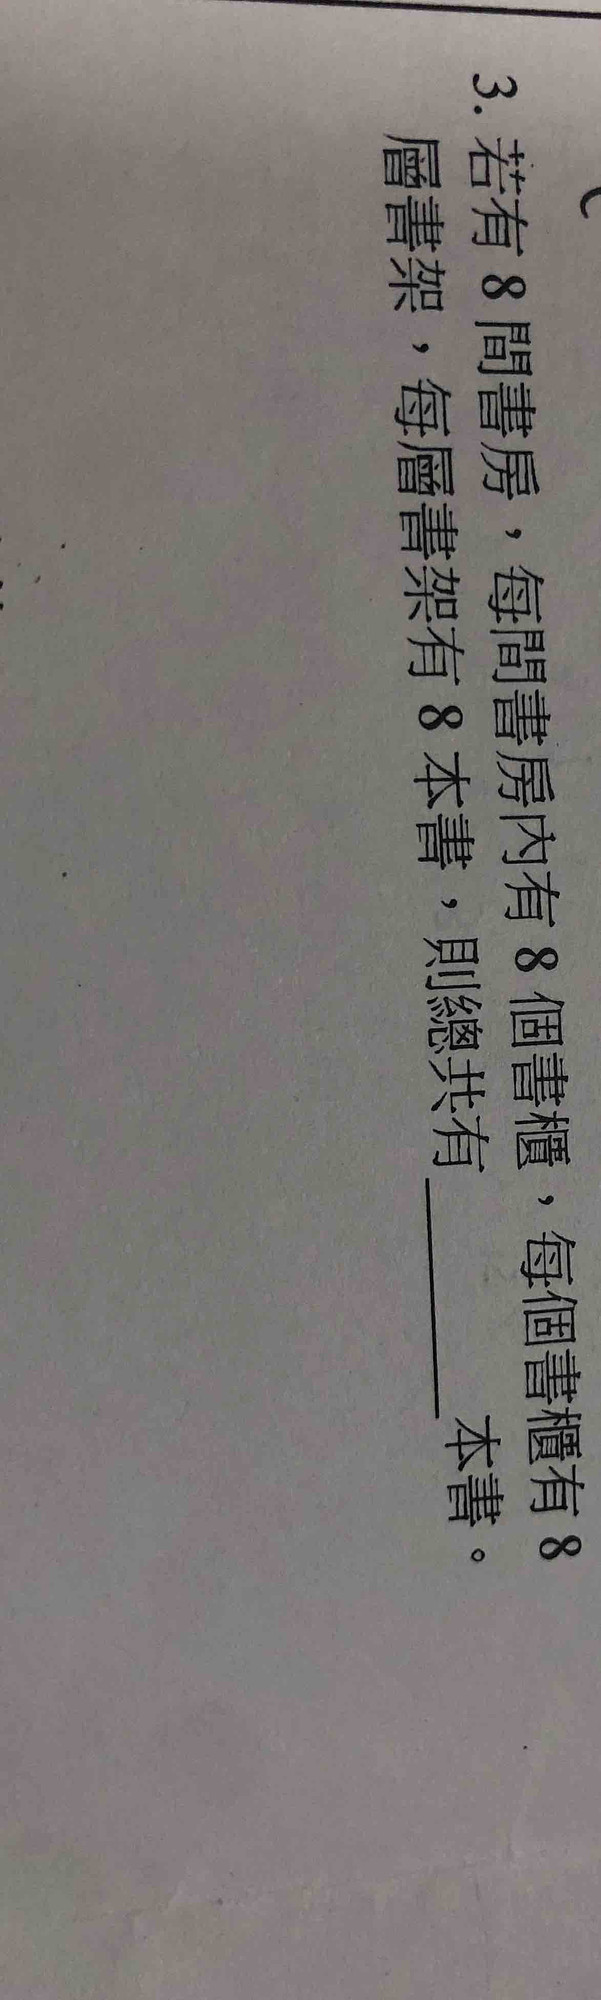 3. 若有 8 間書房，每間書房內有 8 個書櫃，每個書櫃有 8
層書架，每層書架有 8 本書，則總共有________本書。